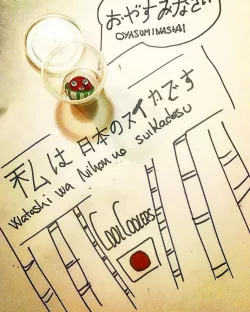 おやすみなさい
OYASUMINASAI
私は日本のスイカです
Watashi wa Nihon no suikadesu
COOL COOLERS